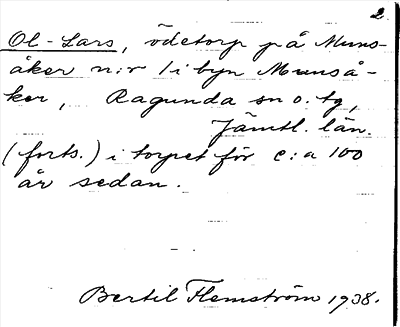 2.
Ol-Lars, ödetorp på Muns-
åker n:r 1 i byn Munså-
ker, Ragunda sn o. tg,
Jämtl. län.
(forts.) i torpet för c:a 100
år sedan.
Bertil Flemström 1938.